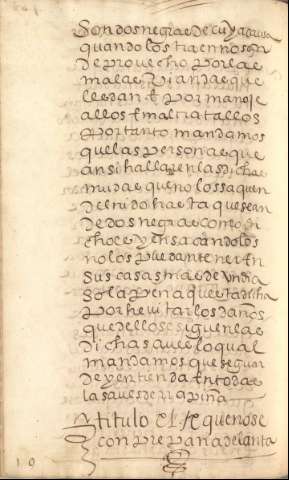 son dos negras de cuya causa
quando los traen no son
de provecho por las
malas viandas que
les dan E por manoje
allos E maltratallos
E por tanto mandamos
que las personas que
ansi hallaren las dichas
mudas que no los saquen
del nido hasta que sean
de dos negras como di
cho es y en sacandolos
no los puedan tener en
sus casas mas de un dia
so la pena que esta dicha
por hevitar los daños
que dello se siguen las
dichas aves lo qual
mandamos que se guar
de y entienda En todas
las aves de rrapiña
titulo El que no se
conpre pan adelanta
10